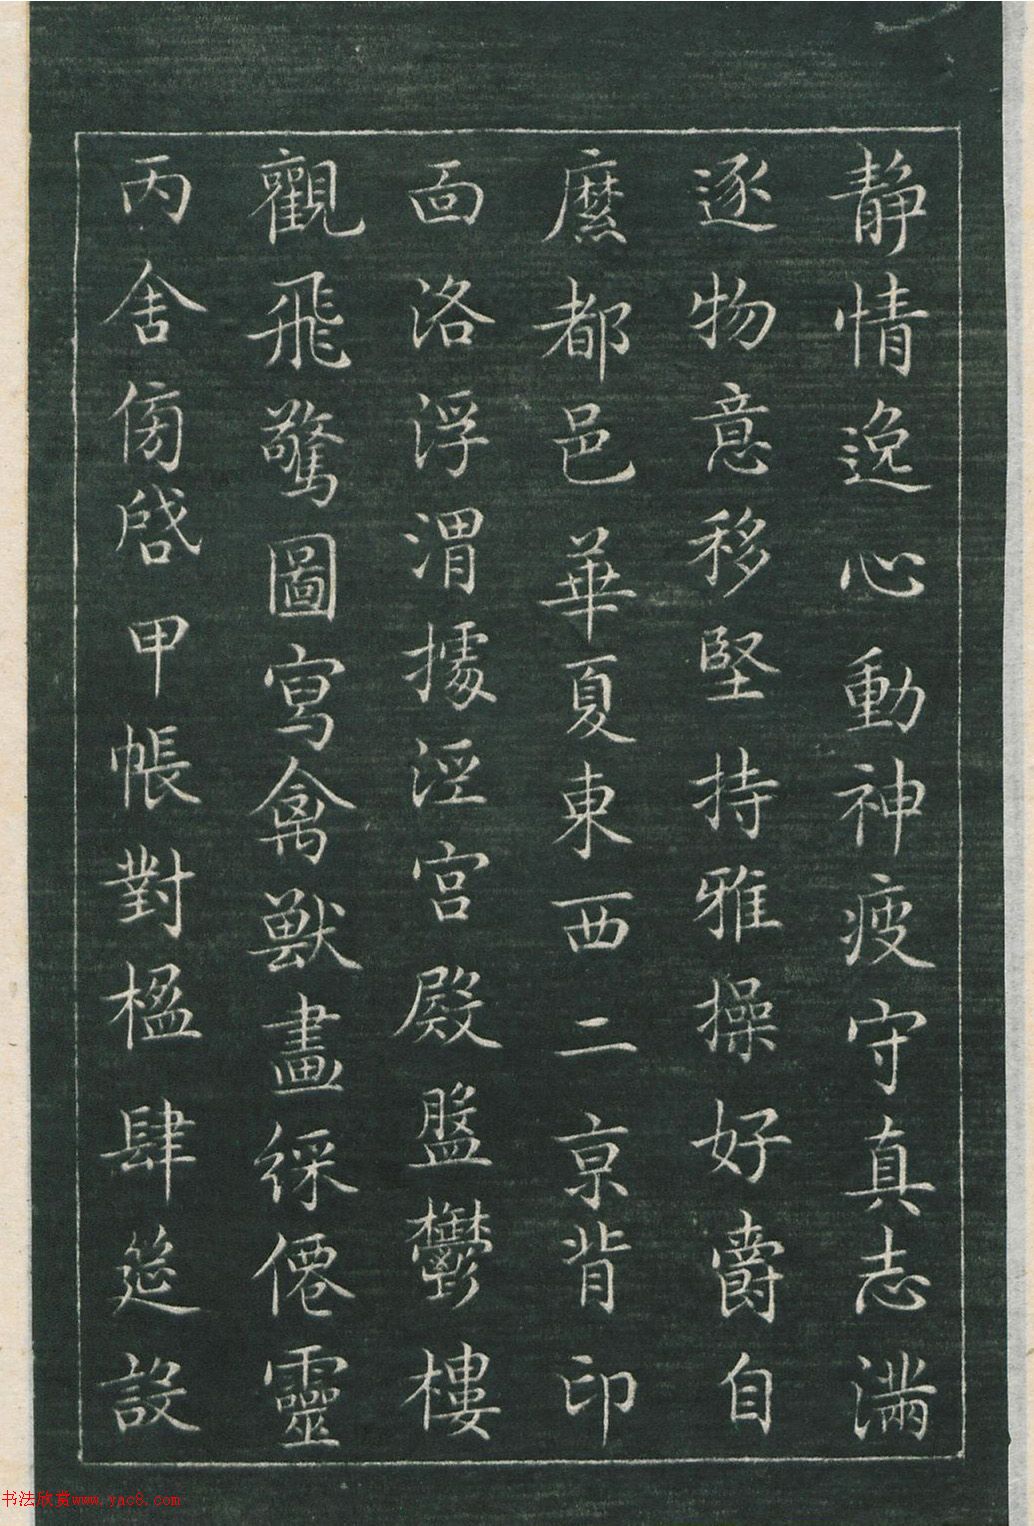 静情逸心動神疲守真志滿
逐物意移堅持雅操好爵自
縻都邑華夏東西二京背邙
面洛浮渭據涇宮殿盤鬱樓
觀飛驚圖寫禽獸畫綵僊靈
丙舍傍啓甲帳對楹肆筵設
书法欣赏www.yac8.com